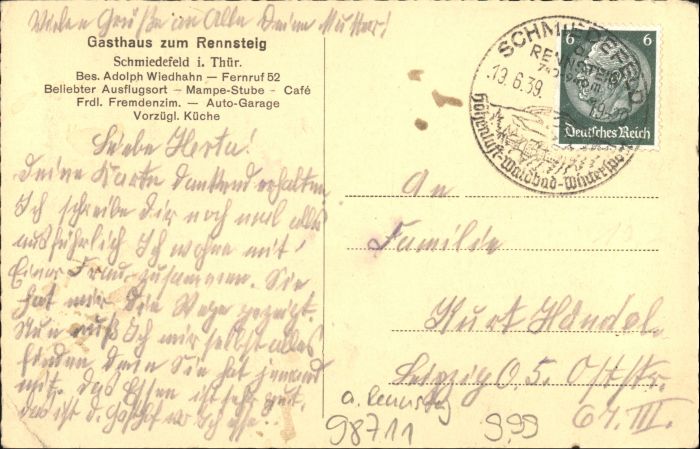 Viele Grüße an Alle Deine Mutter!
Gasthaus zum Rennsteig
Schmiedefeld i. Thür.
Bes. Adolph Wiedhahn — Fernruf 52
Beliebter Ausflugsort — Mampe-Stube - Café
Frdl. Fremdenzim. — Auto-Garage
Vorzügl. Küche
Liebe Herta!
Deine Karte dankend erhalten
Ich schreibe Dir noch mal alles
ausführlich Ich wohne mit
Einer Frau zusammen. Sie
hat mir die Wege gezeigt.
Nun muß Ich mir selbst alles
finden denn Sie hat jemand
mit. Das Essen ist sehr gut.
das ist d. wo Ich esse.
SCHMIEDEFELD
RENNSTEIG
13.6.39.
Höhenluft-Waldbad-Wintersport
6 6
Deutsches Reich
An
Familie
Kurt Händel.
Leipzig O. 5. Oststr.
61. III.
a. Rennsteig
98711 9,99